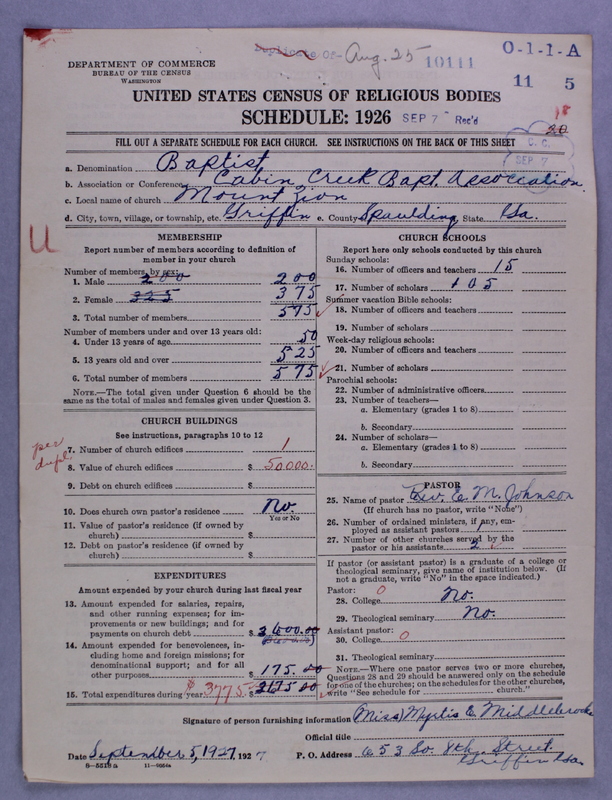 Duplicate Of- Aug. 25 10111 0-1-1-A
DEPARTMENT OF COMMERCE
BUREAU OF THE CENSUS
WASHINGTON
11 5
UNITED STATES CENSUS OF RELIGIOUS BODIES
SCHEDULE: 1926 SEP 7 Rec'd
18
20
FILL OUT A SEPARATE SCHEDULE FOR EACH CHURCH. SEE INSTRUCTIONS ON THE BACK OF THIS SHEET
SEP 7
a. Denomination Baptist
b. Association or Conference Cabin Creek Bapt. Association
c. Local name of church Mount Zion
d. City, town, village, or township, etc. Griffin e. County Spaulding State Ga.
U
MEMBERSHIP
Report number of members according to definition of
member in your church
Number of members, by sex:
1. Male 200 200
2. Female 325 375
3. Total number of members 575
Number of members under and over 13 years old:
4. Under 13 years of age 50
5. 13 years old and over 525
6. Total number of members 575
NOTE.—The total given under Question 6 should be the
same as the total of males and females given under Question 3.
CHURCH BUILDINGS
See instructions, paragraphs 10 to 12
per
dupl.
7. Number of church edifices 1
8. Value of church edifices $ 50000.
9. Debt on church edifices $
10. Does church own pastor's residence? No.
Yes or No
11. Value of pastor's residence (if owned by
church) $
12. Debt on pastor's residence (if owned by
church) $
EXPENDITURES
Amount expended by your church during last fiscal year
13. Amount expended for salaries, repairs,
and other running expenses; for im-
provements or new buildings; and for
payments on church debt $ 3600.00
14. Amount expended for benevolences, in-
cluding home and foreign missions; for
denominational support; and for all
other purposes $ 175.00
15. Total expenditures during year $ 3775 $ 2175 00
CHURCH SCHOOLS
Report here only schools conducted by this church
Sunday schools:
16. Number of officers and teachers 15
17. Number of scholars 105
Summer vacation Bible schools:
18. Number of officers and teachers
19. Number of scholars
Week-day religious schools:
20. Number of officers and teachers
21. Number of scholars
Parochial schools:
22. Number of administrative officers
23. Number of teachers—
a. Elementary (grades 1 to 8)
b. Secondary
24. Number of scholars—
a. Elementary (grades 1 to 8)
b. Secondary
PASTOR
25. Name of pastor Rev. E. M. Johnson
(If church has no pastor, write "None")
26. Number of ordained ministers, if any, em-
ployed as assistant pastors 1
27. Number of other churches served by the
pastor or his assistants 2
If pastor (or assistant pastor) is a graduate of a college or
theological seminary, give name of institution below. (If
not a graduate, write "No" in the space indicated.)
Pastor: 0
28. College No.
29. Theological seminary No.
Assistant pastor:
30. College 0
31. Theological seminary
NOTE.—Where one pastor serves two or more churches,
Questions 28 and 29 should be answered only on the schedule
for one of the churches; on the schedules for the other churches,
write "See schedule for church."
Signature of person furnishing information (Miss) Myrtis E Middlebrooks
Official title
Date September 5, 1927, 192 7 P. O. Address 653 So. 8th Street.
Griffin Ga.
8-5518a 11-9864a